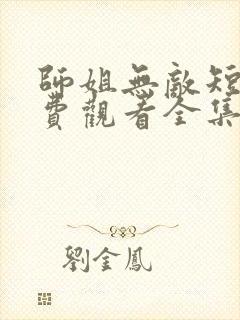 師姐無敵短
費觀看全集
劉金鳳